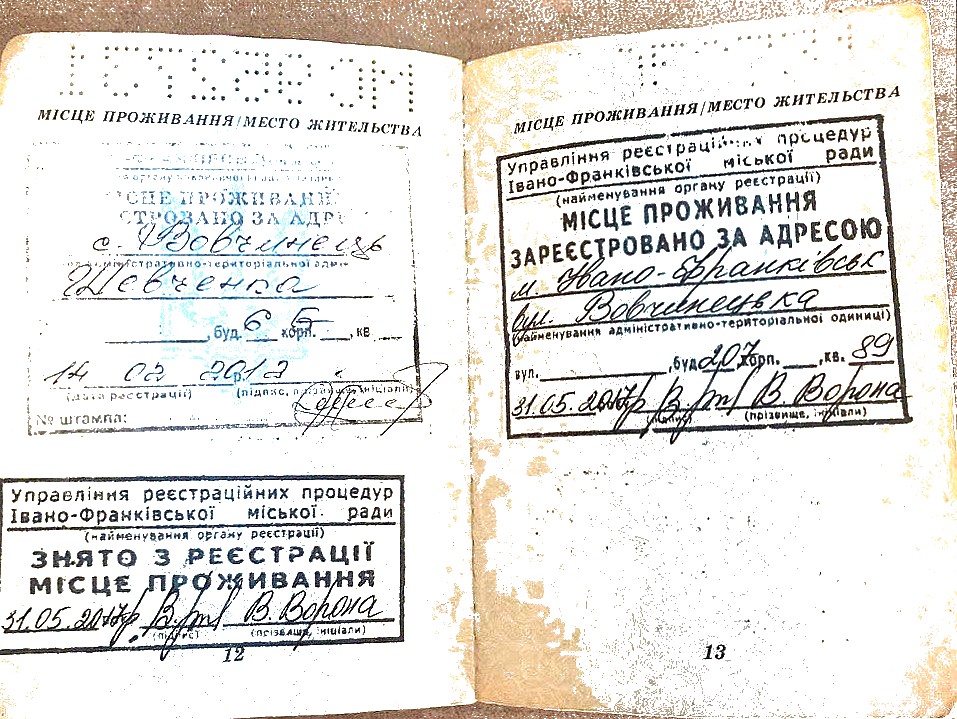 МІСЦЕ ПРОЖИВАННЯ/МЕСТО ЖИТЕЛЬСТВА
МІСЦЕ ПРОЖИВАНН
СТРОВАНО ЗА АДРЕ
с. Вовчинець
адміністративно-територіальної один
Шевченка
, буд. 6 корп. , кв
14 02 2012
(дата реєстрації) (підпис, прізвище, ініціали)
№ штампа:
Управління реєстраційних процедур
Івано-Франківської міської ради
(найменування органу реєстрації)
ЗНЯТО З РЕЄСТРАЦІЇ
МІСЦЕ ПРОЖИВАННЯ
31.05.2017р. В. Ворона
(підпис) (прізвище, ініціали)
12
МІСЦЕ ПРОЖИВАННЯ/МЕСТО ЖИТЕЛЬСТВА
Управління реєстраційних процедур
Івано-Франківської міської ради
(найменування органу реєстрації)
МІСЦЕ ПРОЖИВАННЯ
ЗАРЕЄСТРОВАНО ЗА АДРЕСОЮ
м. Івано-Франківськ
вул. Вовчинецька
(найменування адміністративно-територіальної одиниці)
вул. , буд. 207 корп. , кв. 89
31.05.2017р. В. Ворона
(підпис) (прізвище, ініціали)
13